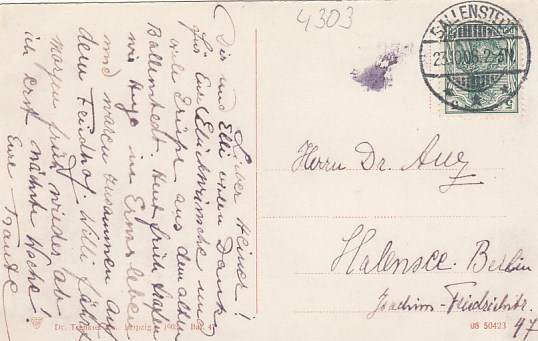 4303
BALLENSTEDT
23.10.08.2-3N
Lieber Heiner!
Dir und Elli vielen Dank
für Eure Glückwünsche und
viele Grüße aus dem alten
Ballenstedt. Heut früh trafen
wir Hugo in Ermsleben
und waren zusammen auf
dem Friedhof. Willi fährt
morgen früh wieder ab
ich erst nächste Woche!
Eure Traute
Herrn Dr.
Halensee-Berlin
Joachim-Friedrichstr.
47
Dr. Leipzig
08 50423